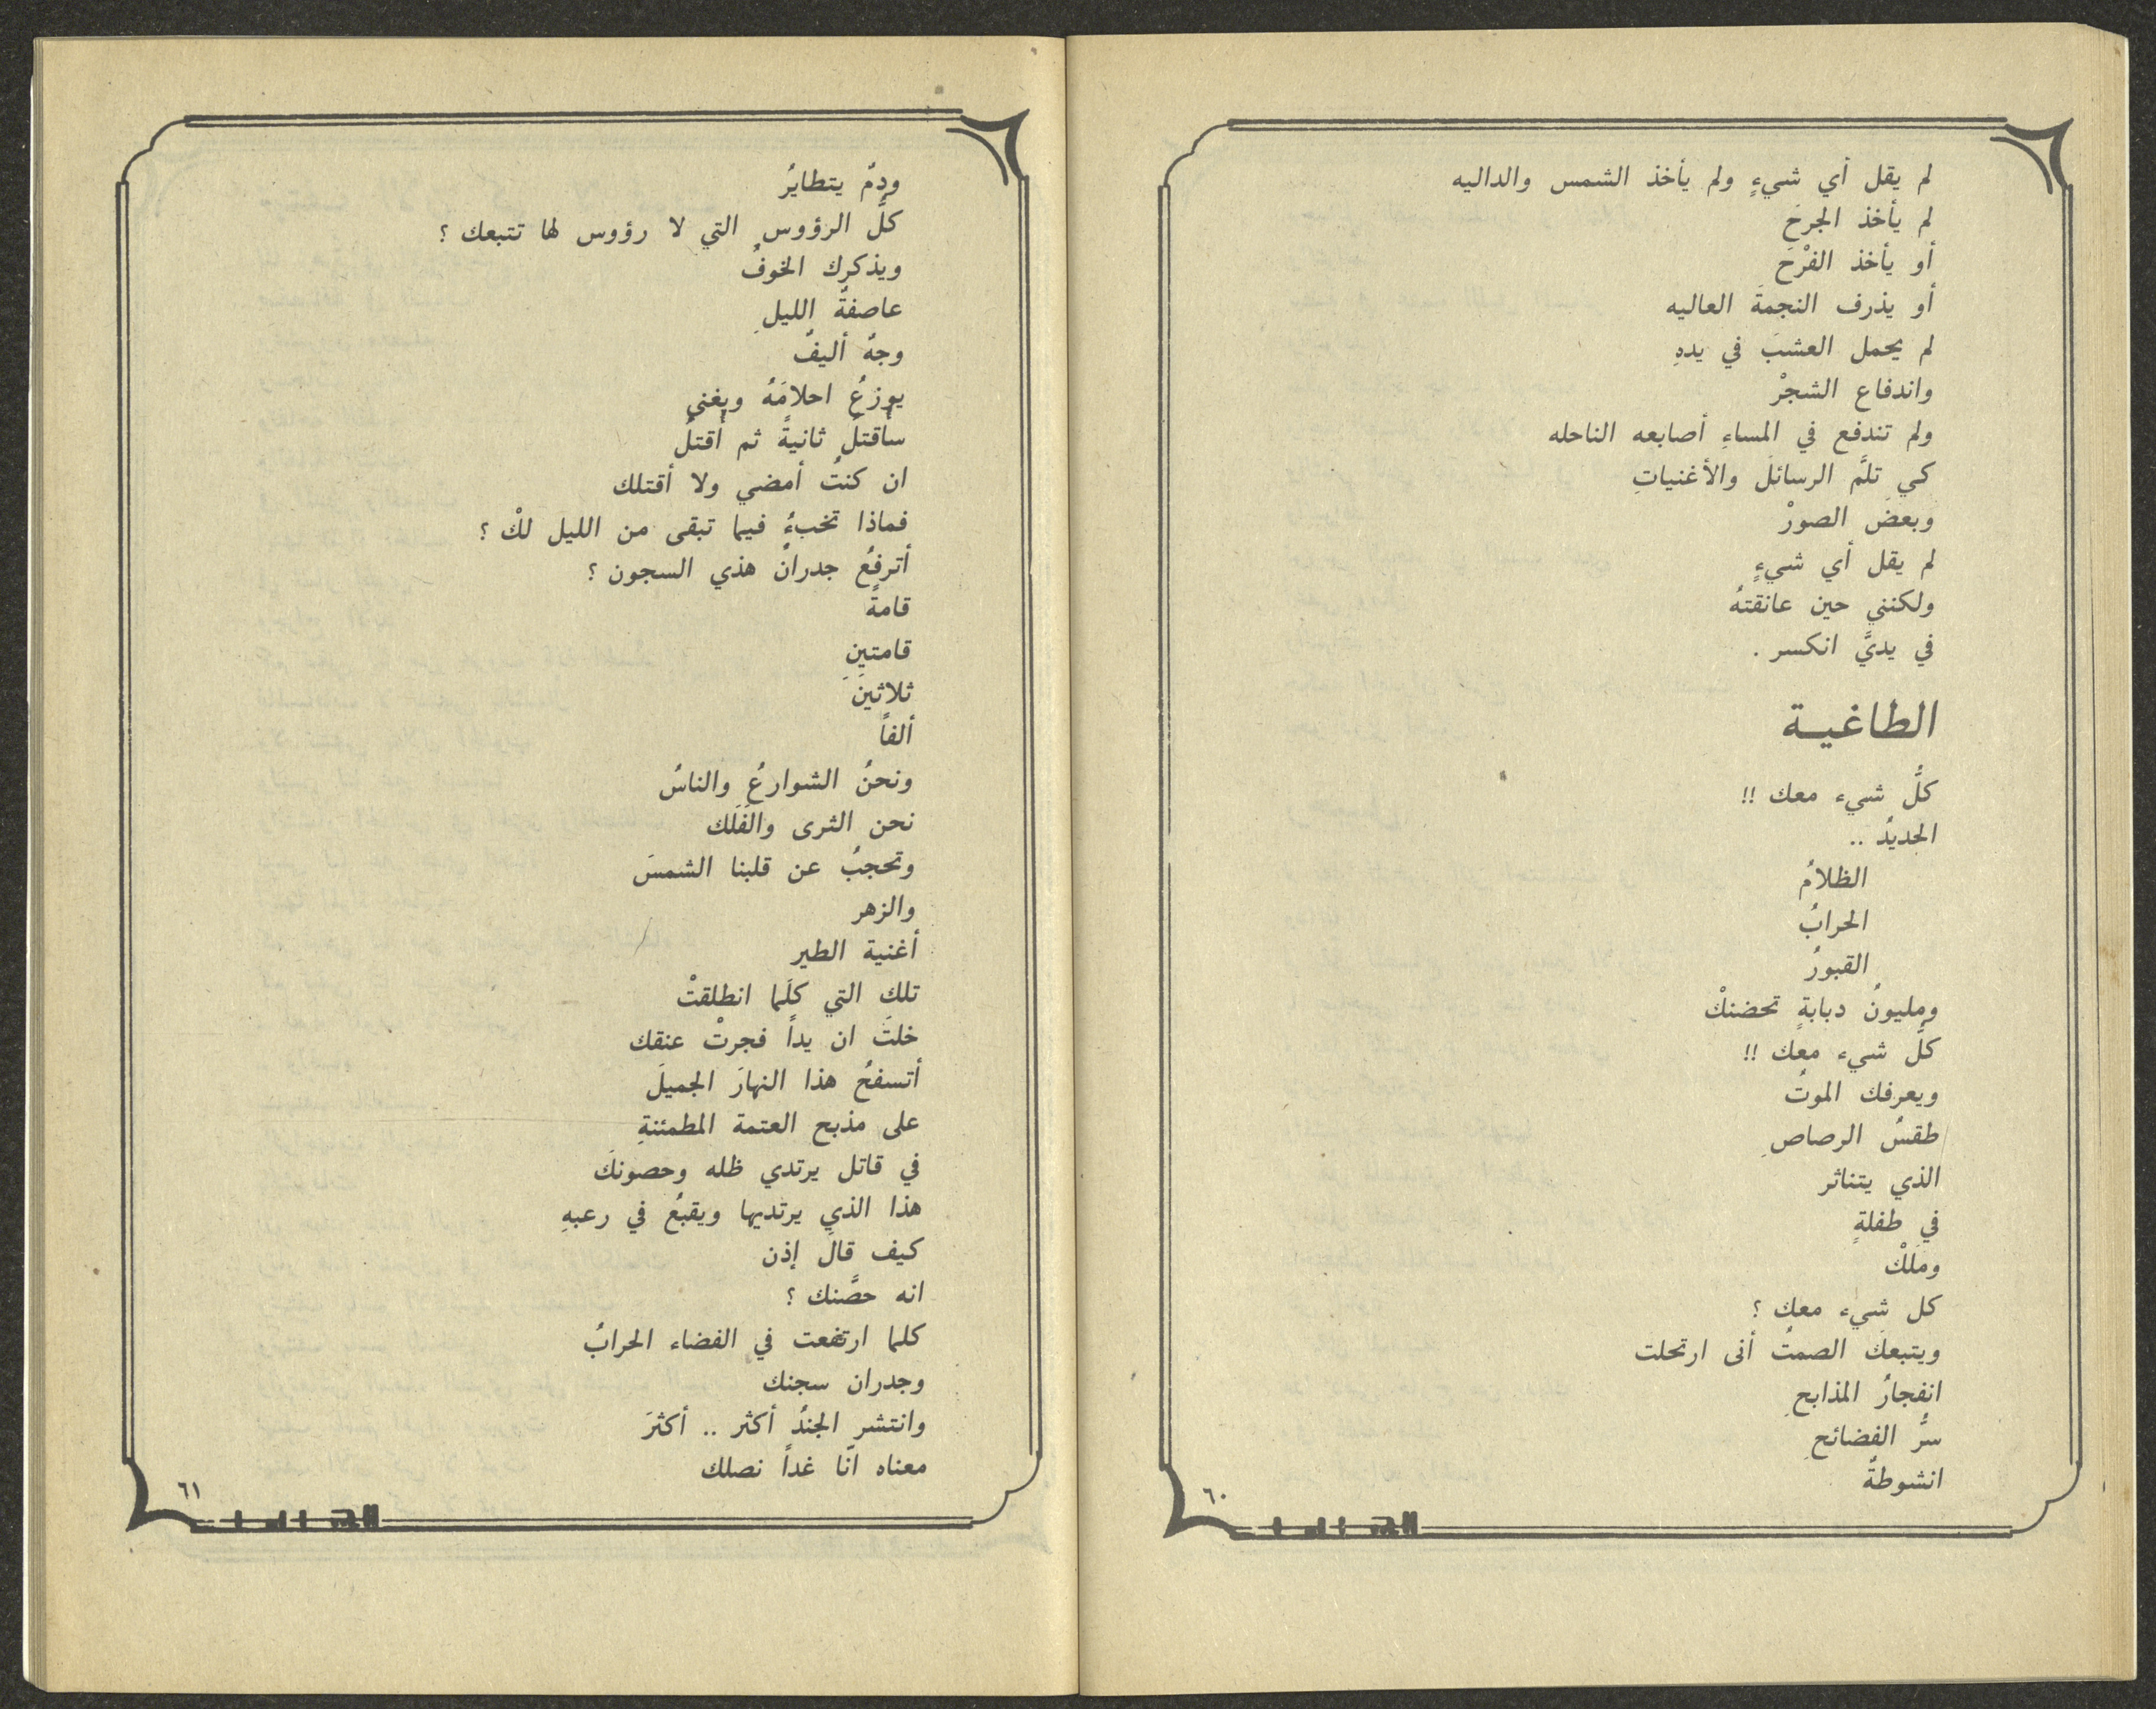 لم يقل أي شيءٍ ولم يأخذ الشمس والداليه
لم يأخذ الجرحَ
أو يأخذ الفرْحَ
أو يذرف النجمةَ العاليه
لم يحمل العشبَ في يدهِ
واندفاع الشجرْ
ولم تندفع في المساءِ أصابعه الناحله
كي تلمَّ الرسائلَ والأغنياتِ
وبعضَ الصورْ
لم يقل أي شيءٍ
ولكنني حين عانقتهُ
في يديَّ انكسر .
الطاغيـة
كلُّ شيء معك !!
الحديدُ ..
الظلامُ
الحرابُ
القبورُ
ومليونُ دبابةٍ تحضنكْ
كلُّ شيء معك !!
ويعرفك الموتُ
طقسُ الرصاصِ
الذي يتناثر
في طفلةٍ
ومَلَكْ
كل شيء معك ؟
ويتبعكَ الصمتُ أنى ارتحلت
انفجارُ المذابحِ
سرُّ الفضائحِ
انشوطةٌ
٦٠
ودمٌ يتطايرُ
كلُّ الرؤوسِ التي لا رؤوس لها تتبعك ؟
ويذكرك الخوفُ
عاصفةُ الليلِ
وجهٌ أليفٌ
يوزعُ احلامَهُ ويغني
سأُقتلُ ثانيةً ثم أُقتلُ
ان كنتُ أمضي ولا أقتلك
فماذا تخبءُ فيما تبقى من الليل لكْ ؟
أترفعُ جدرانَ هذي السجون ؟
قامةً
قامتينِ
ثلاثينَ
ألفاً
ونحنُ الشوارعُ والناسُ
نحن الثرى والفَلَك
وتحجبُ عن قلبنا الشمسَ
والزهر
أغنية الطير
تلك التي كلَما انطلقتْ
خلتَ ان يداً فجرتْ عنقك
أتسفحُ هذا النهارَ الجميلَ
على مذبح العتمة المطمئنةِ
في قاتل يرتدي ظله وحصونكَ
هذا الذي يرتديها ويقبعُ في رعبهِ
كيف قالَ إذن
انه حصَّنك ؟
كلما ارتفعت في الفضاء الحرابُ
وجدران سجنك
وانتشر الجندُ أكثر .. أكثرَ
معناه انّا غداً نصلك
٦١